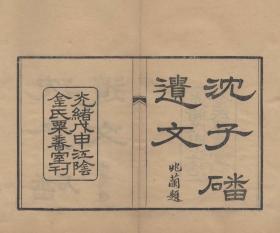 沈子磻
遺文
兆蘭題
光緒戊申江陰
金氏粟香室刊